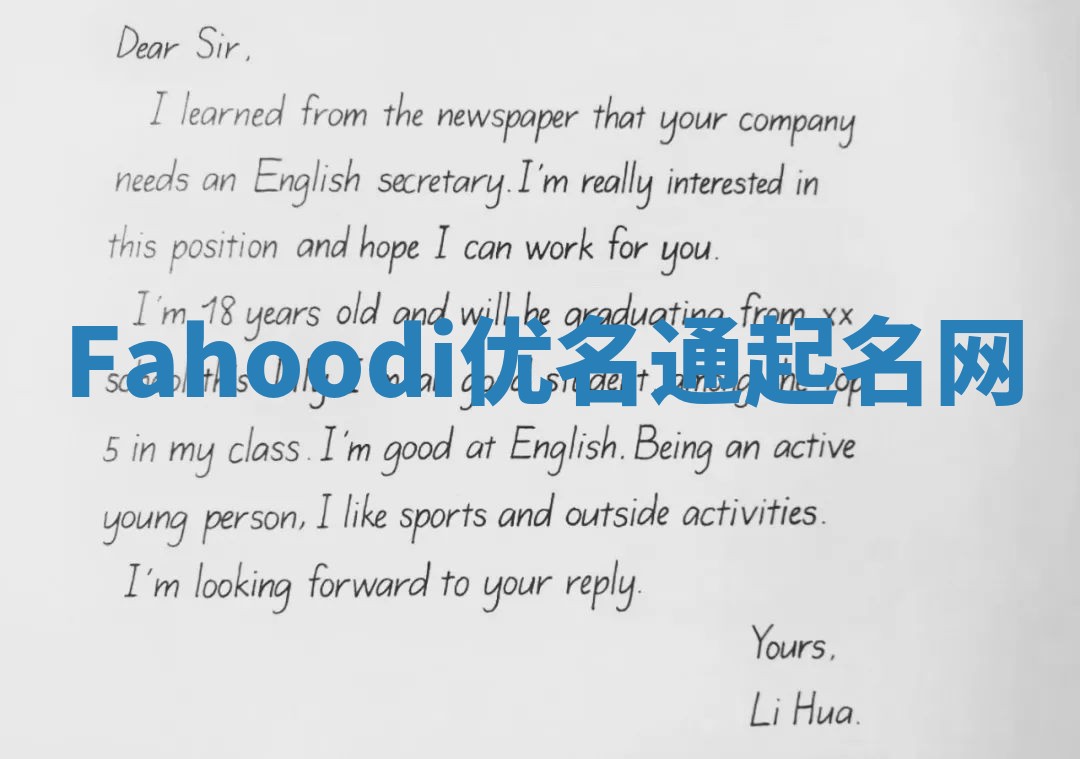 Dear Sir,
I learned from the newspaper that your company
needs an English secretary. I'm really interested in
this position and hope I can work for you.
I'm 18 years old and will be graduating from xx
Fahoodi优名通起名网
school this July. I student, among the top
5 in my class. I'm good at English. Being an active
young person, I like sports and outside activities.
I'm looking forward to your reply.
Yours,
Li Hua.